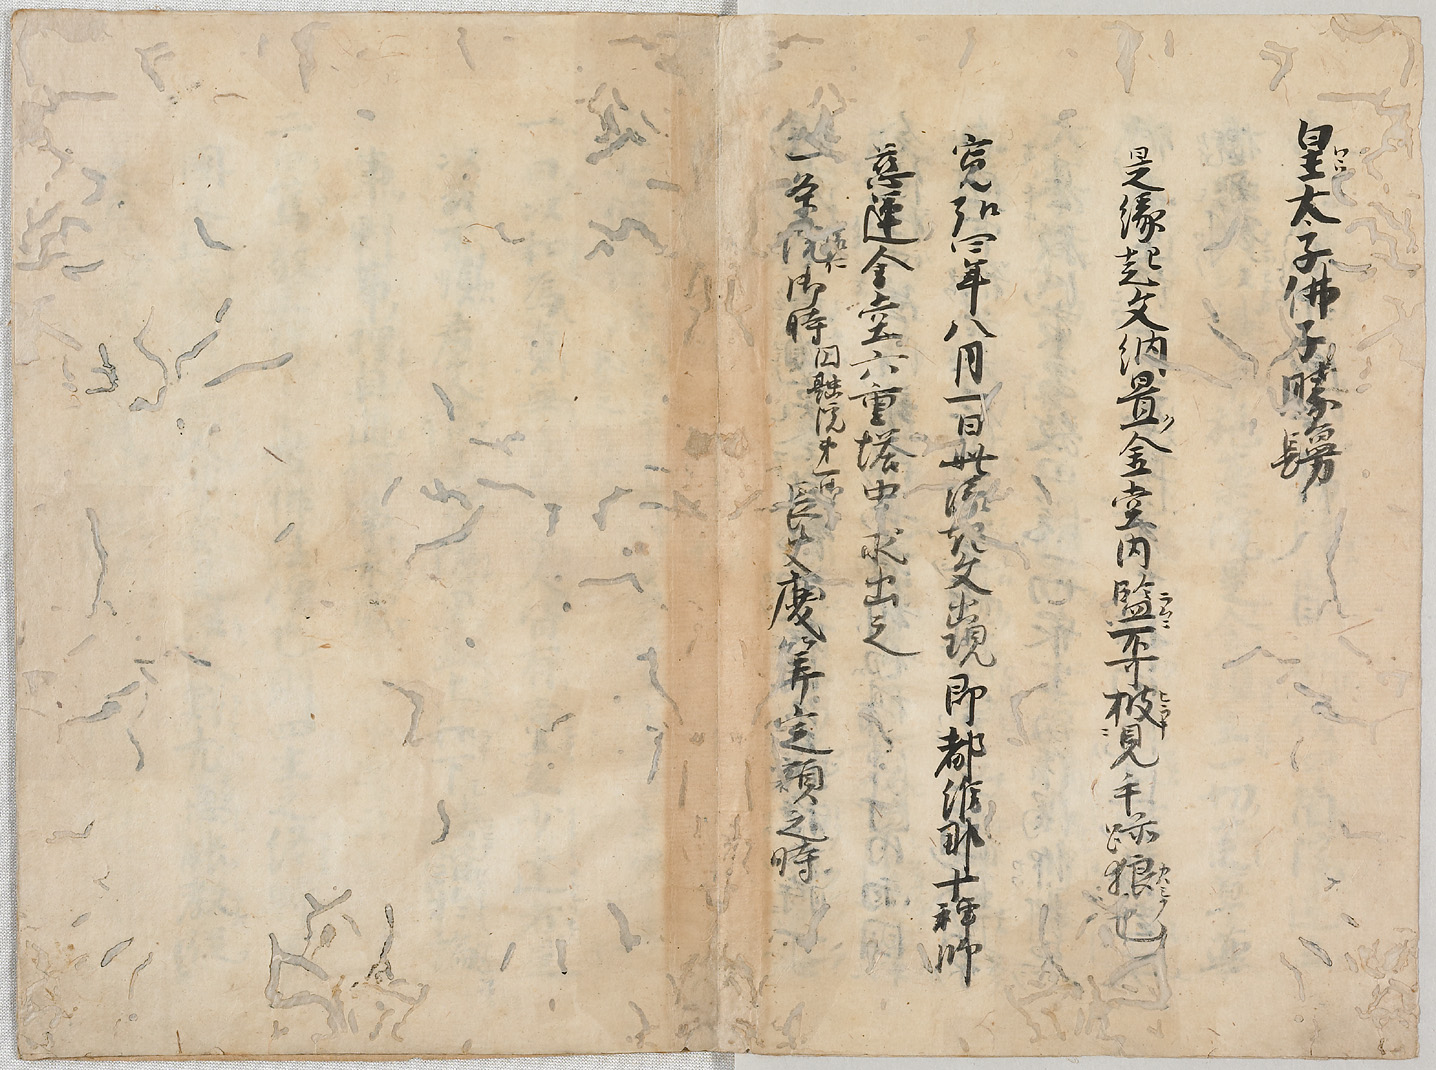 皇太子佛子勝鬘
是縁起文納置金堂内監不可披見手跡狼也
寛弘四年八月一日此縁起文出現即都維那十禪師
慈運金堂六重塔中求出之
一条院御時 長夫慶算定額之時